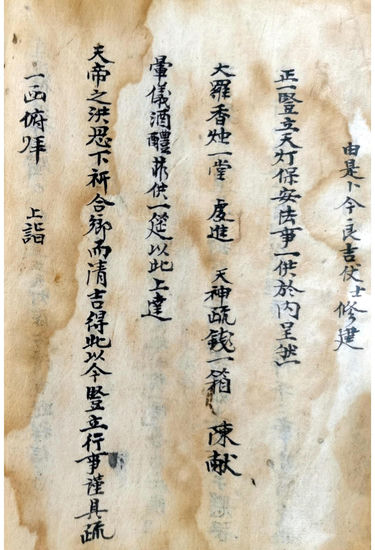 由是卜今良吉仗士修建
正一竪立天灯保安法事一供於内呈然
大羅香炧一堂 虔進 天神疏錢一箱 陳献
暈儀酒醴菲供一筵以此上達
天帝之洪恩下祈合鄉而清吉得此以今竪立行事謹具疏
一函俯拜 上詣